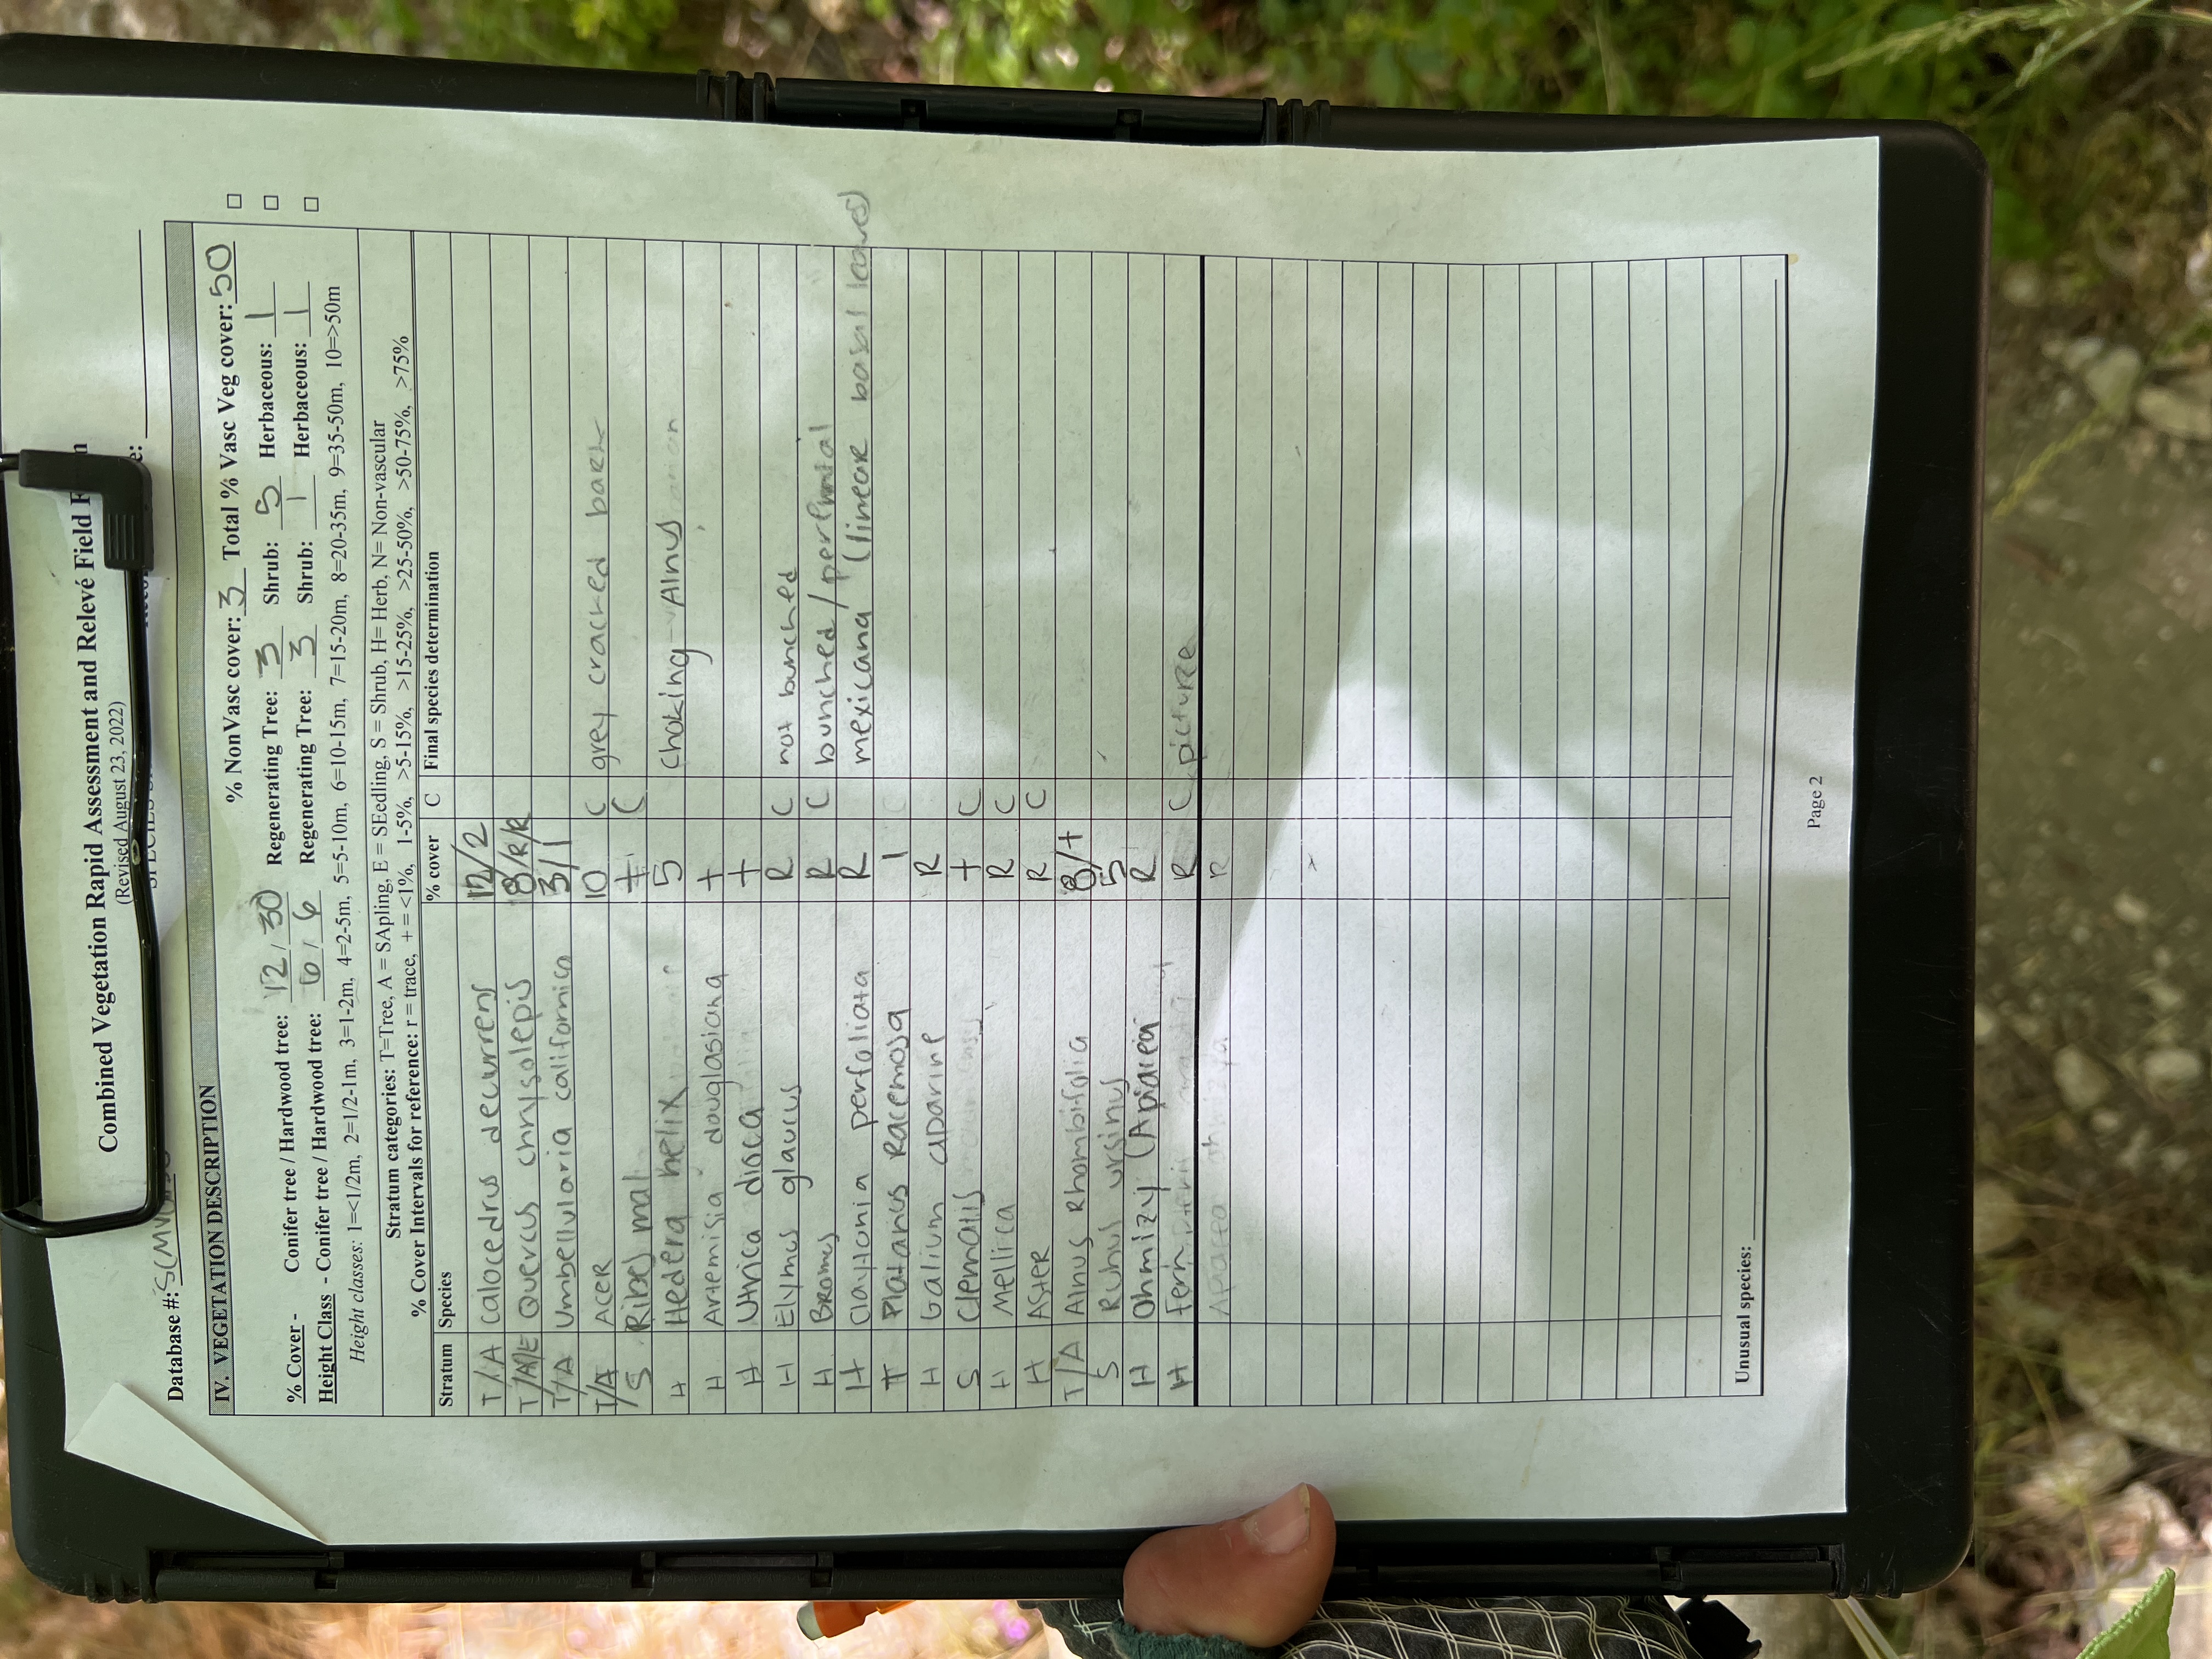 Combined Vegetation Rapid Assessment and Relevé Field F
(Revised August 23, 2022)
Database #: SCMV
IV. VEGETATION DESCRIPTION
% NonVasc cover: 3 Total % Vasc Veg cover: 50
% Cover - Conifer tree / Hardwood tree: 12 / 30 Regenerating Tree: 3 Shrub: 5 Herbaceous: 1
Height Class - Conifer tree / Hardwood tree: 6 / 6 Regenerating Tree: 3 Shrub: 1 Herbaceous: 1
Height classes: 1=<1/2m, 2=1/2-1m, 3=1-2m, 4=2-5m, 5=5-10m, 6=10-15m, 7=15-20m, 8=20-35m, 9=35-50m, 10=>50m
Stratum categories: T=Tree, A = SApling, E = SEedling, S = Shrub, H= Herb, N= Non-vascular
% Cover Intervals for reference: r = trace, + = <1%, 1-5%, >5-15%, >15-25%, >25-50%, >50-75%, >75%
Stratum Species % cover C Final species determination
T/A Calocedrus decurrens 12/2
T/A/E Quercus chrysolepis 8/R/R
T/A Umbellularia californica 3/1
T/A ACER 10 C grey cracked bark
S Ribes mal + C
H Hedera helix 5 Choking Alnus
H Artemisia douglasiana +
H Utrica dioca +
H Elymus glaucus R C not bunched
H Bromus R C bunched / perennial
H Claytonia perfoliata R mexicana (linear basal leaves)
T Platanus Racemosa 1 C
H Galium aparine R
S Clematis + C
H Mellica R C
H Aster R C
T/A Alnus Rhombifolia 8/+
S Rubus ursinus 5
H Ohmizy (Apiacea R
H fern R C picture
R
Unusual species:
Page 2